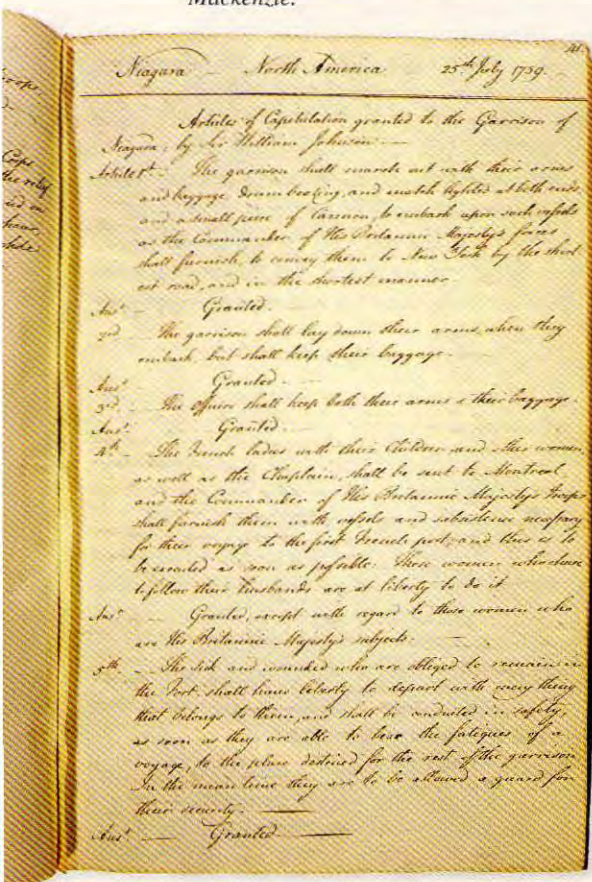 Mackenzie.
Niagara North America 25th July 1759.
Articles of Capitulation granted to the Garrison of
Niagara, by Sir William Johnson
Article 1st The garrison shall march out with their arms
and baggage, drum beating, and match lighted at both ends
and a small piece of Cannon, to embark upon such vessels
as the Commander of His Britannic Majesty's forces
shall furnish, to convey them to New York by the short
est road, and in the shortest manner.
Ansr. Granted.
2nd The garrison shall lay down their arms when they
embark, but shall keep their baggage.
Ansr. Granted.
3rd. The officers shall keep both their arms & their baggage.
Ansr. Granted.
4th The French ladies with their Children and other women
as well as the Chaplain, shall be sent to Montreal
and the Commander of His Britannic Majesty's troops
shall furnish them with vessels and subsistence necessary
for their voyage to the first French port, and this is to
be executed as soon as possible. Those women who chuse
to follow their husbands are at liberty to do it
Ansr. Granted, except with regard to those women who
are His Britannic Majesty's subjects.
5th. The sick and wounded who are obliged to remain in
the Fort, shall have liberty to depart with every thing
that belongs to them, and shall be conducted in safety,
as soon as they are able to bear the fatigues of a
voyage, to the place destined for the rest of the garrison
In the mean time they are to be allowed a guard for
their security.
Ansr. Granted